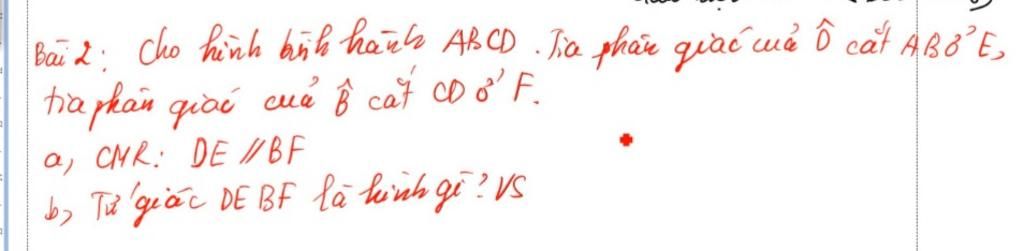 Bài 2: Cho hình bình hành ABCD. Tia phân giác của D̂ cắt AB ở E,
tia phân giác của B̂ cắt CD ở F.
a, CMR: DE // BF
b, Tứ giác DEBF là hình gì? VS